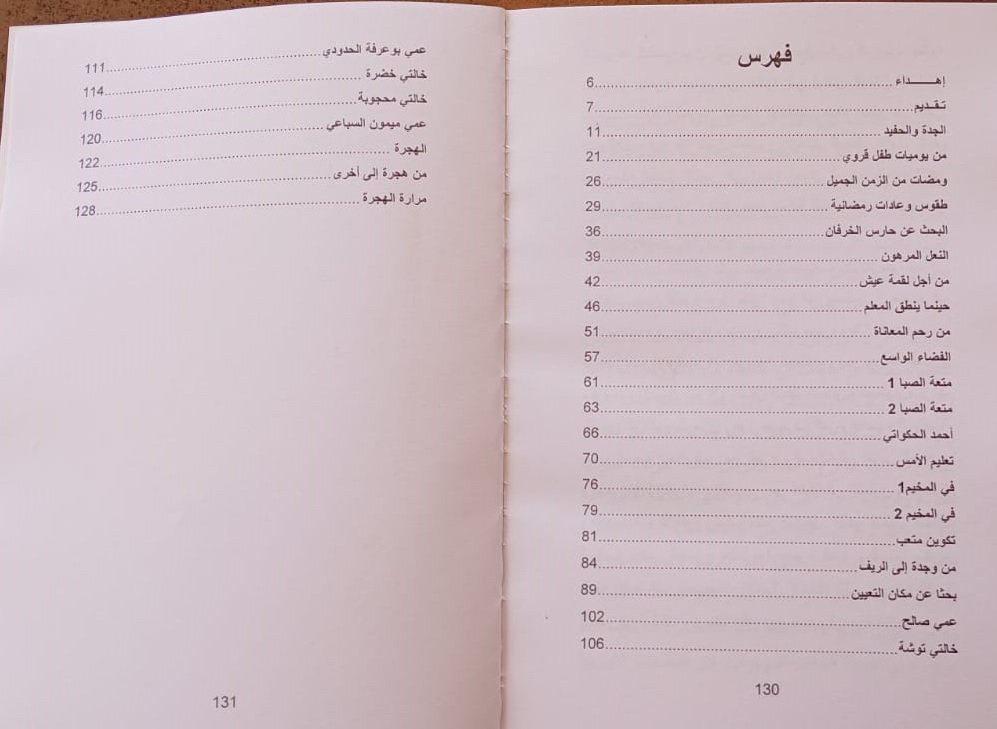 فهرس
إهـــــداء ........................................ 6
تـقـديم ........................................ 7
الجدة والحفيد ........................................ 11
من يوميات طفل قروي ........................................ 21
ومضات من الزمن الجميل ........................................ 26
طقوس وعادات رمضانية ........................................ 29
البحث عن حارس الخرفان ........................................ 36
النعل المرهون ........................................ 39
من أجل لقمة عيش ........................................ 42
حينما ينطق المعلم ........................................ 46
من رحم المعاناة ........................................ 51
الفضاء الواسع ........................................ 57
متعة الصبا 1 ........................................ 61
متعة الصبا 2 ........................................ 63
أحمد الحكواتي ........................................ 66
تعليم الأمس ........................................ 70
في المخيم1 ........................................ 76
في المخيم 2 ........................................ 79
تكوين متعب ........................................ 81
من وجدة إلى الريف ........................................ 84
بحثا عن مكان التعيين ........................................ 89
عمي صالح ........................................ 102
خالتي توشة ........................................ 106
130
عمي بوعرفة الحدودي ........................................ 111
خالتي خضرة ........................................ 114
خالتي محجوبة ........................................ 116
عمي ميمون السباعي ........................................ 120
الهجرة ........................................ 122
من هجرة إلى أخرى ........................................ 125
مرارة الهجرة ........................................ 128
131